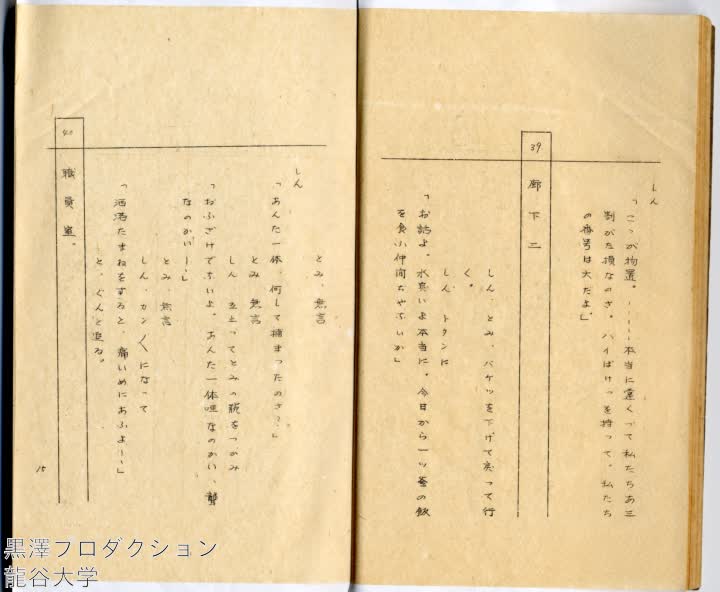 しん
「こゝが物置。……本当に重くって私たちあ三
割がた損なのさ。ハイばけつを持って。私たち
の番号は大だよ。」
39 廊下二
しん、とみ、バケツを下げて戻って行
く。
しん トタンに
「お詰よ。水臭いよ本当に。今日から一ツ釜の飯
を食ふ仲間ぢやないか」
とみ、無言
しん
「あんた一体、何して捕まつたのさ？」
とみ 無言
しん 立止ってとみの腕をつかみ
「おふざけでないよ。あんた一体唖なのかい、聾
なのかい！」
とみ、無言
しん、カンくになって
「洒落たまねをすると、痛いめにあふよ！」
と、ぐんと迫る。
40 職員室。
15
黒澤プロダクション
龍谷大学